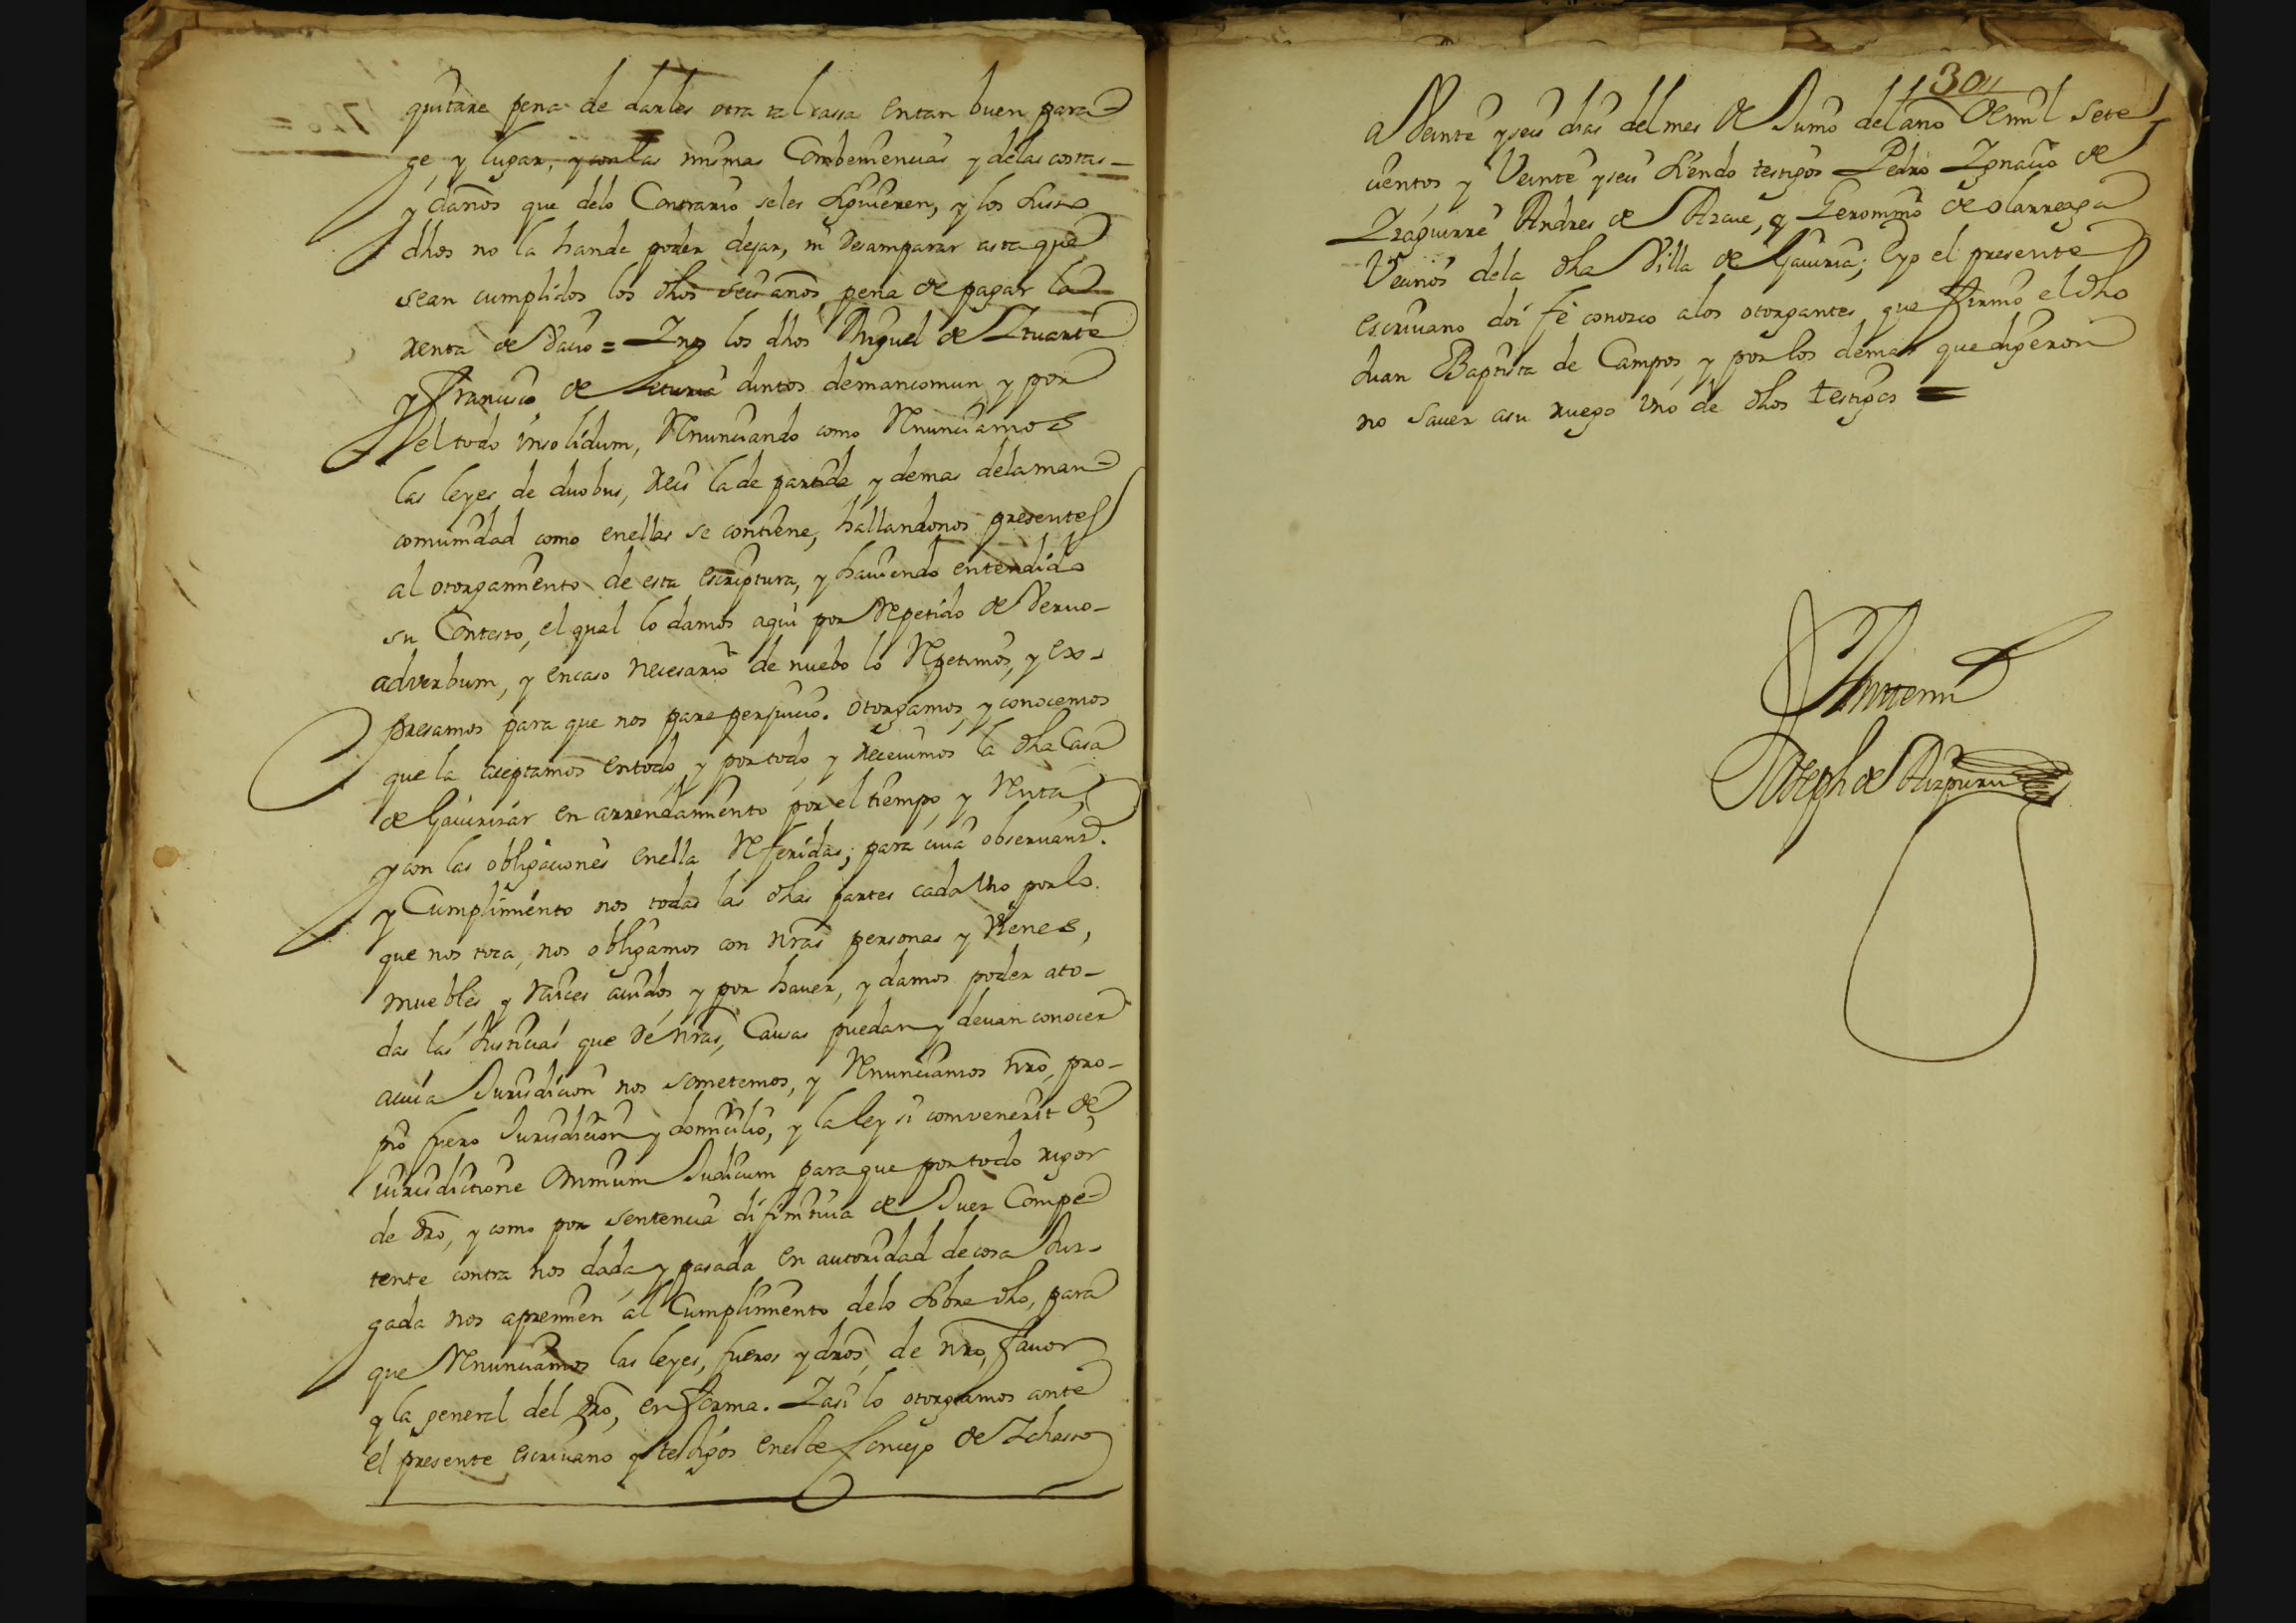 quitare pena de darles otra tal cassa en tan buen para
ge, y lugar, y con las mismas Combeniencias y de las costas
y daños que delo Contrario seles siguieren, y los suso
dhos no la han de poder dejar, ni desamparar asta que
sean cumplidos los dhos seis años pena de pagar la
renta de Vacio = Y nos los dhos Miguel de Ytuarte
y Francisco de juntos de mancomun y por
el todo insolidum, Renunciando como Renunciamos
las leyes de duobus, reis la de partida y demas dela man-
comunidad como enellas se contiene, hallandonos presentes
al otorgamiento de esta escriptura, y haviendo entendido
su Contesto, el qual lo damos aqui por Repetido de Vervo-
adverbum, y en caso necesario de nuebo lo Repetimos, y ex-
presamos para que nos pare perjuicio. otorgamos, y conocemos
que la aceptamos en todo, y por todo, y recevimos la dha Casa
de Gavirizar en arrendamiento por el tiempo, y Renta,
y con las obligaciones enella Referidas; para cuia observanz.ª
y Cumplimiento nos todas las dhas partes cada Uno por lo
que nos toca, nos obligamos con nras personas y Vienes,
muebles y Raices avidos y por haver, y damos poder ato-
das las Justicias que de nras, Causas puedan y devan conocer
acuia Jurisdicion nos sometemos, y Renunciamos nro, pro-
pio fuero Jurisdicion y domicilio, y la ley si convenerit de
iurisdictione omnium Judicum para que por todo rigor
de dro, y como por sentencia difinitiva de Juez Compe-
tente contra nos dada, y pasada en autoridad de cosa Juz-
gada nos apremien al Cumplimiento delo sobre dho, para
que Renunciamos las leyes, fueros y dros, de nro, favor
y la general del dro, en forma. Y asi lo otorgamos ante
el presente escrivano y testigos eneste Concejo de Ychasso
301
a Veinte y seis dias del mes de Junio del año de mil sete
cientos y Veinte y seis siendo testigos Pedro Ygnacio de
Yzaguirre Andres de Arcue, y Geronimo de olarreaga
Vecinos dela dha Villa de Gaviria; e yo el presente
escrivano doi fe conozco alos otorgantes que firmo el dho
Juan Baptista de Campos, y por los demas que digeron
no saver asu ruego Uno de dhos testigos =
Antemi
Joseph de Aizpuru